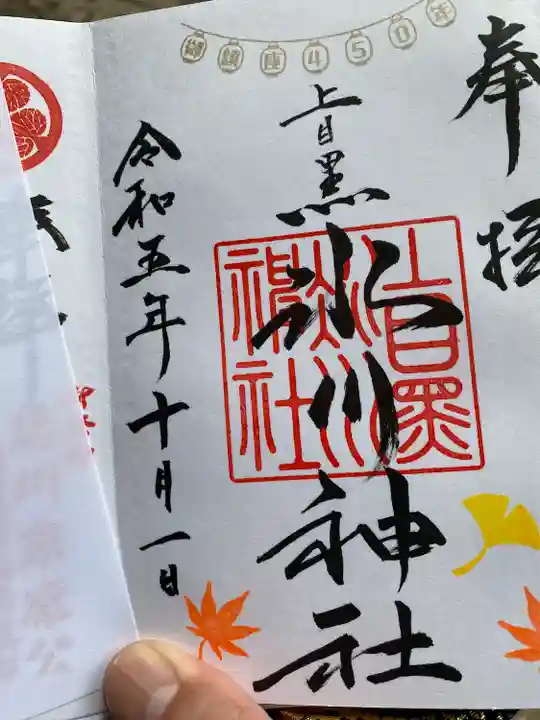 御鎮座450年
奉拝
上目黒
氷川神社
上目黒氷川神社
令和五年十月一日